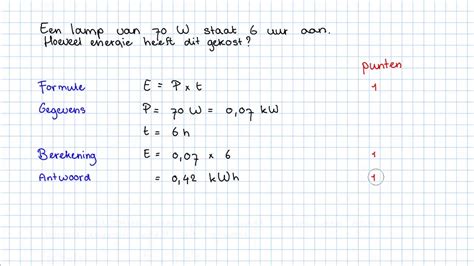 Een lamp van 70 W staat 6 uur aan.
Hoeveel energie heeft dit gekost?
punten
Formule E = P x t 1
Gegevens P = 70 W = 0,07 kW
t = 6 h
Berekening E = 0,07 x 6 1
Antwoord = 0,42 kWh 1